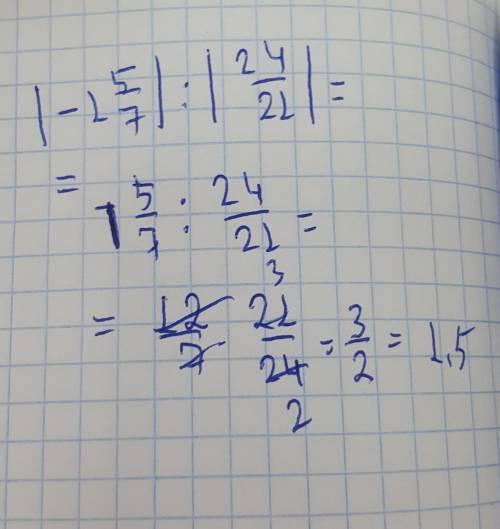 |-1 5/7| : |24/21| =
= 1 5/7 : 24/21 =
= 12/7 · 21/24 = 3/2 = 1,5
3
2